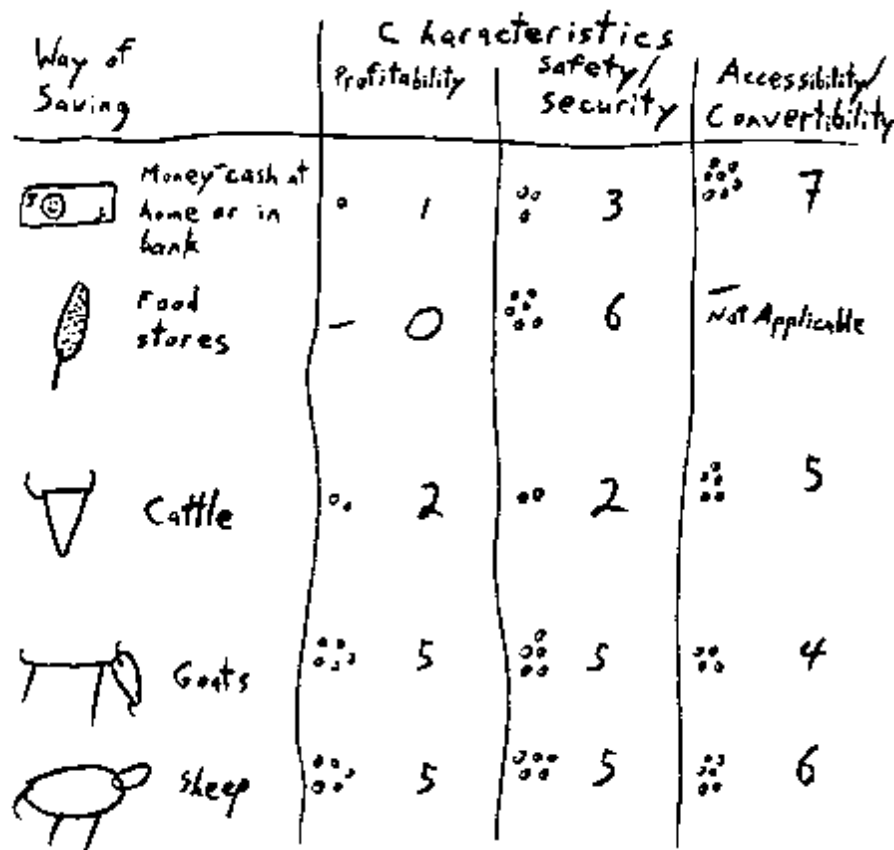 Characteristics
Way of
Saving
Profitability
Safety/
security
Accessibility/
Convertibility
Money-cash at
home or in
bank
1
3
7
Food
stores
- 0
6
- Not Applicable
Cattle
2
2
5
Goats
5
5
4
sheep
5
5
6